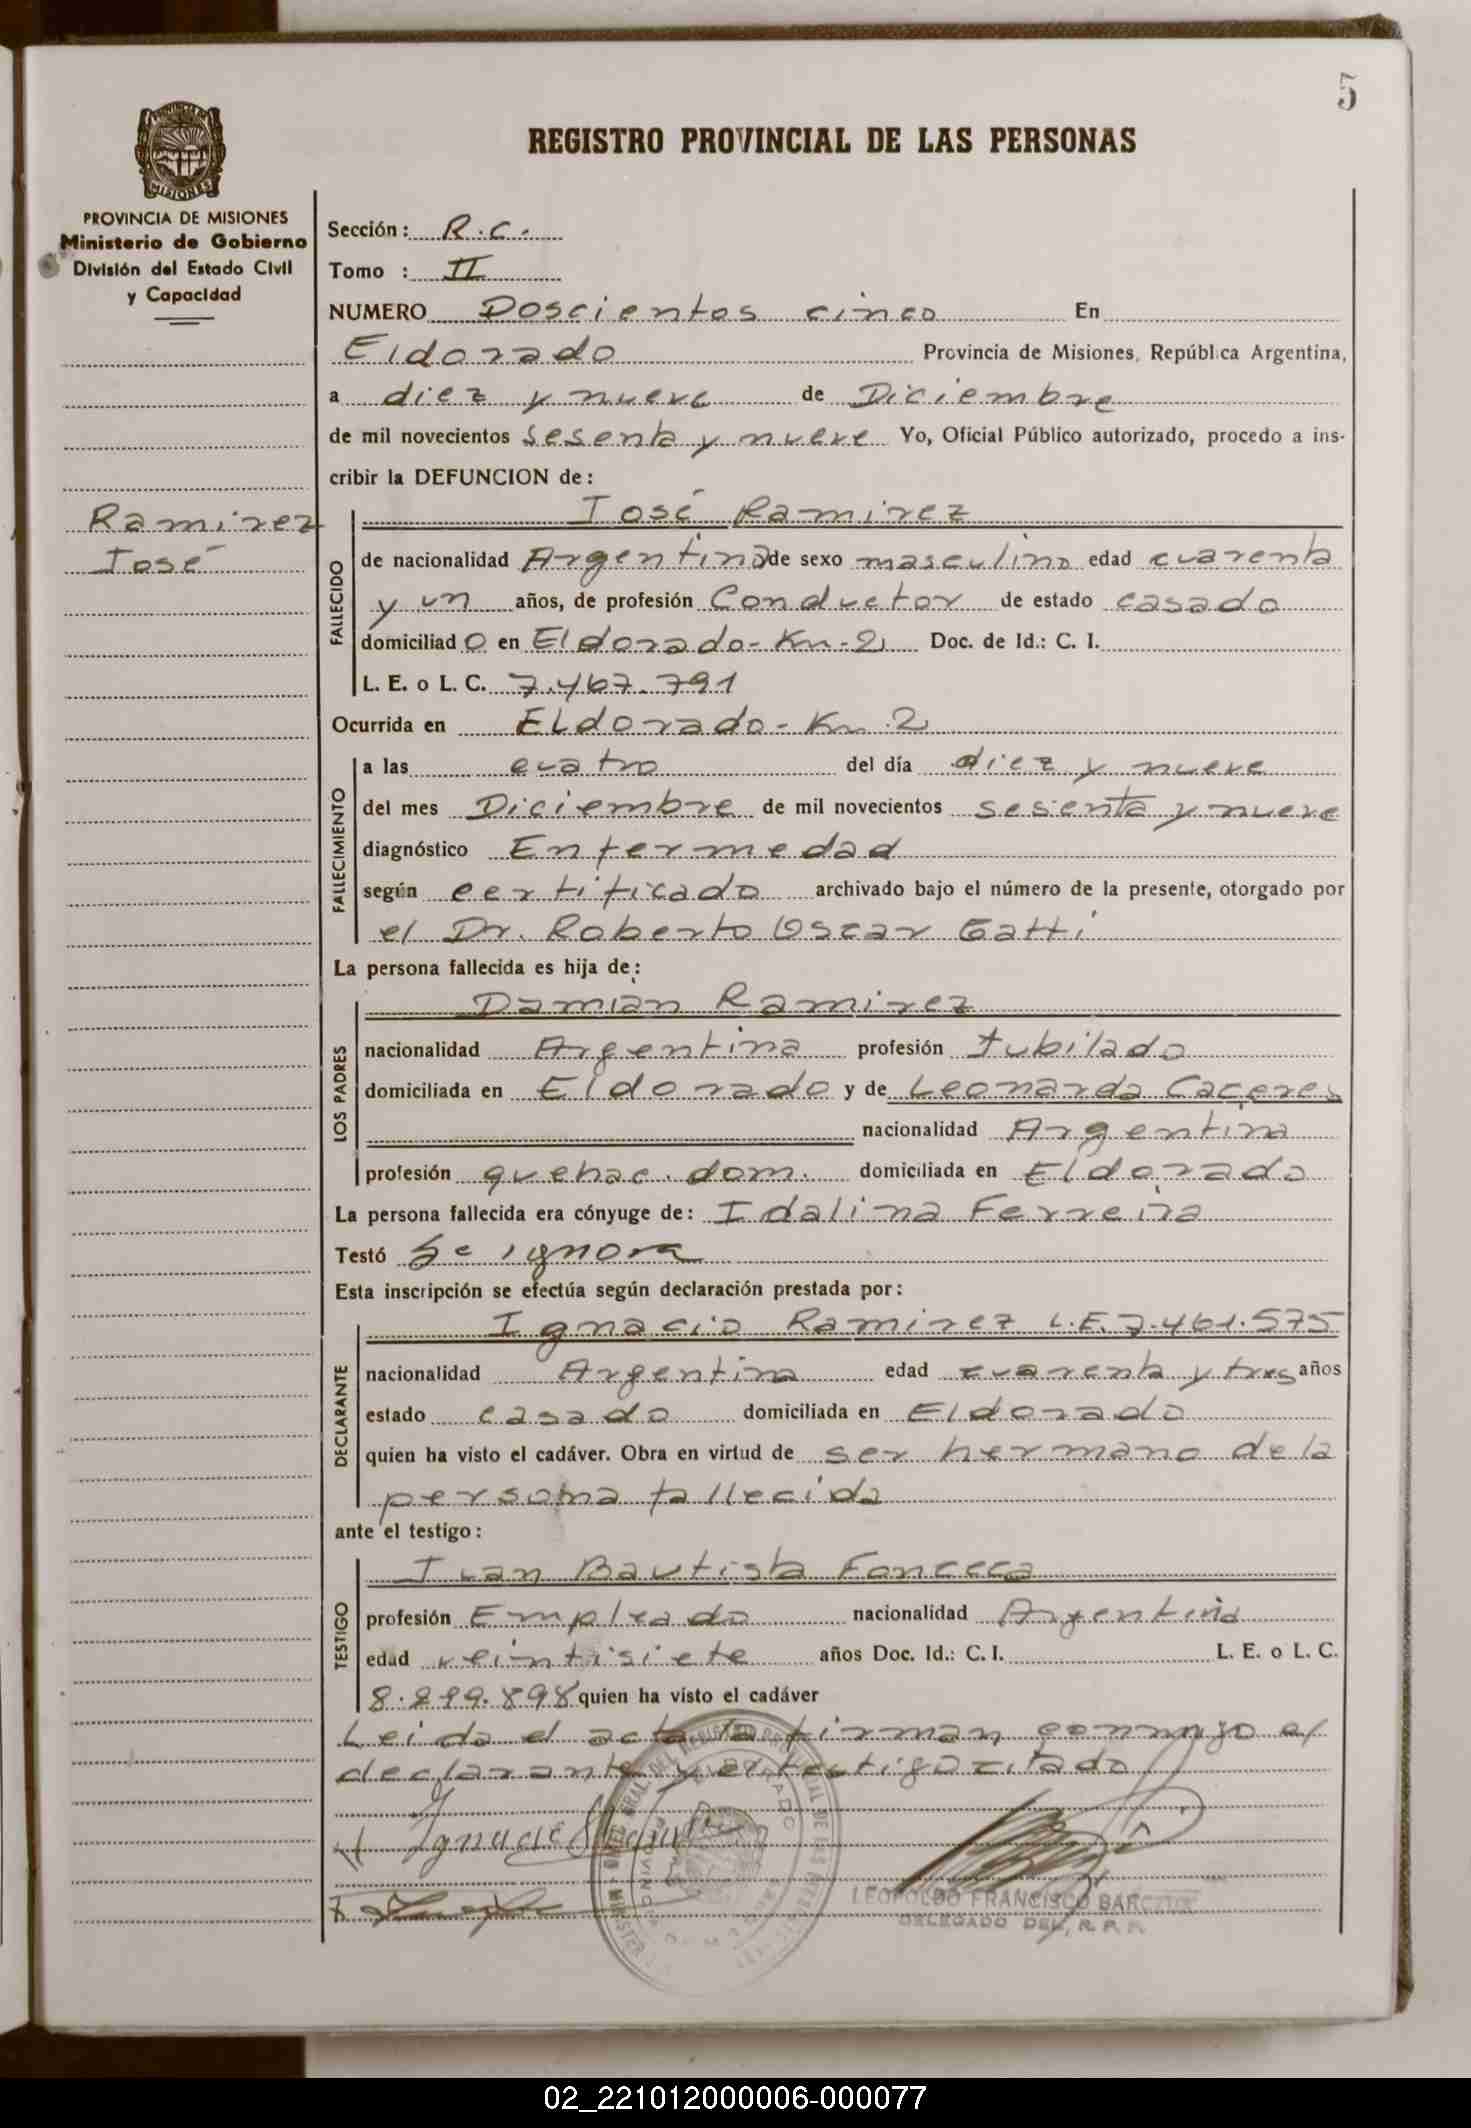 5
REGISTRO PROVINCIAL DE LAS PERSONAS
PROVINCIA DE MISIONES
Ministerio de Gobierno
División del Estado Civil
y Capacidad
Ramirez
José
Sección: R.C.
Tomo : II
NUMERO Doscientos cinco En
Eldorado Provincia de Misiones, República Argentina,
a diez y nueve de Diciembre
de mil novecientos sesenta y nueve Yo, Oficial Público autorizado, procedo a ins-
cribir la DEFUNCION de:
José Ramirez
FALLECIDO
de nacionalidad Argentina de sexo masculino edad cuarenta
y un años, de profesión Conductor de estado casado
domiciliado en Eldorado-Km-2 Doc. de Id.: C. I.
L. E. o L. C. 7.467.791
Ocurrida en Eldorado-Km 2
FALLECIMIENTO
a las cuatro del día diez y nueve
del mes Diciembre de mil novecientos sesenta y nueve
diagnóstico Enfermedad
según certificado archivado bajo el número de la presente, otorgado por
el Dr. Roberto Oscar Gatti
La persona fallecida es hija de:
Damián Ramirez
LOS PADRES
nacionalidad Argentina profesión Jubilado
domiciliada en Eldorado y de Leonarda Caceres
nacionalidad Argentina
profesión quehac. dom. domiciliada en Eldorado
La persona fallecida era cónyuge de: Idalina Ferreira
Testó Se ignora
Esta inscripción se efectúa según declaración prestada por:
Ignacio Ramirez L.E. 7.461.575
DECLARANTE
nacionalidad Argentina edad cuarenta y tres años
estado casado domiciliada en Eldorado
quien ha visto el cadáver. Obra en virtud de ser hermano de la
persona fallecida
ante el testigo:
Juan Bautista Fonceca
TESTIGO
profesión Empleado nacionalidad Argentina
edad veintisiete años Doc. Id.: C. I. L. E. o L. C.
quien ha visto el cadáver
Leida el acta la firman conmigo el
declarante y el testigo citado
Ignacio
LEOPOLDO FRANCISCO
DELEGADO DEL R. P. P.
02_221012000006-000077